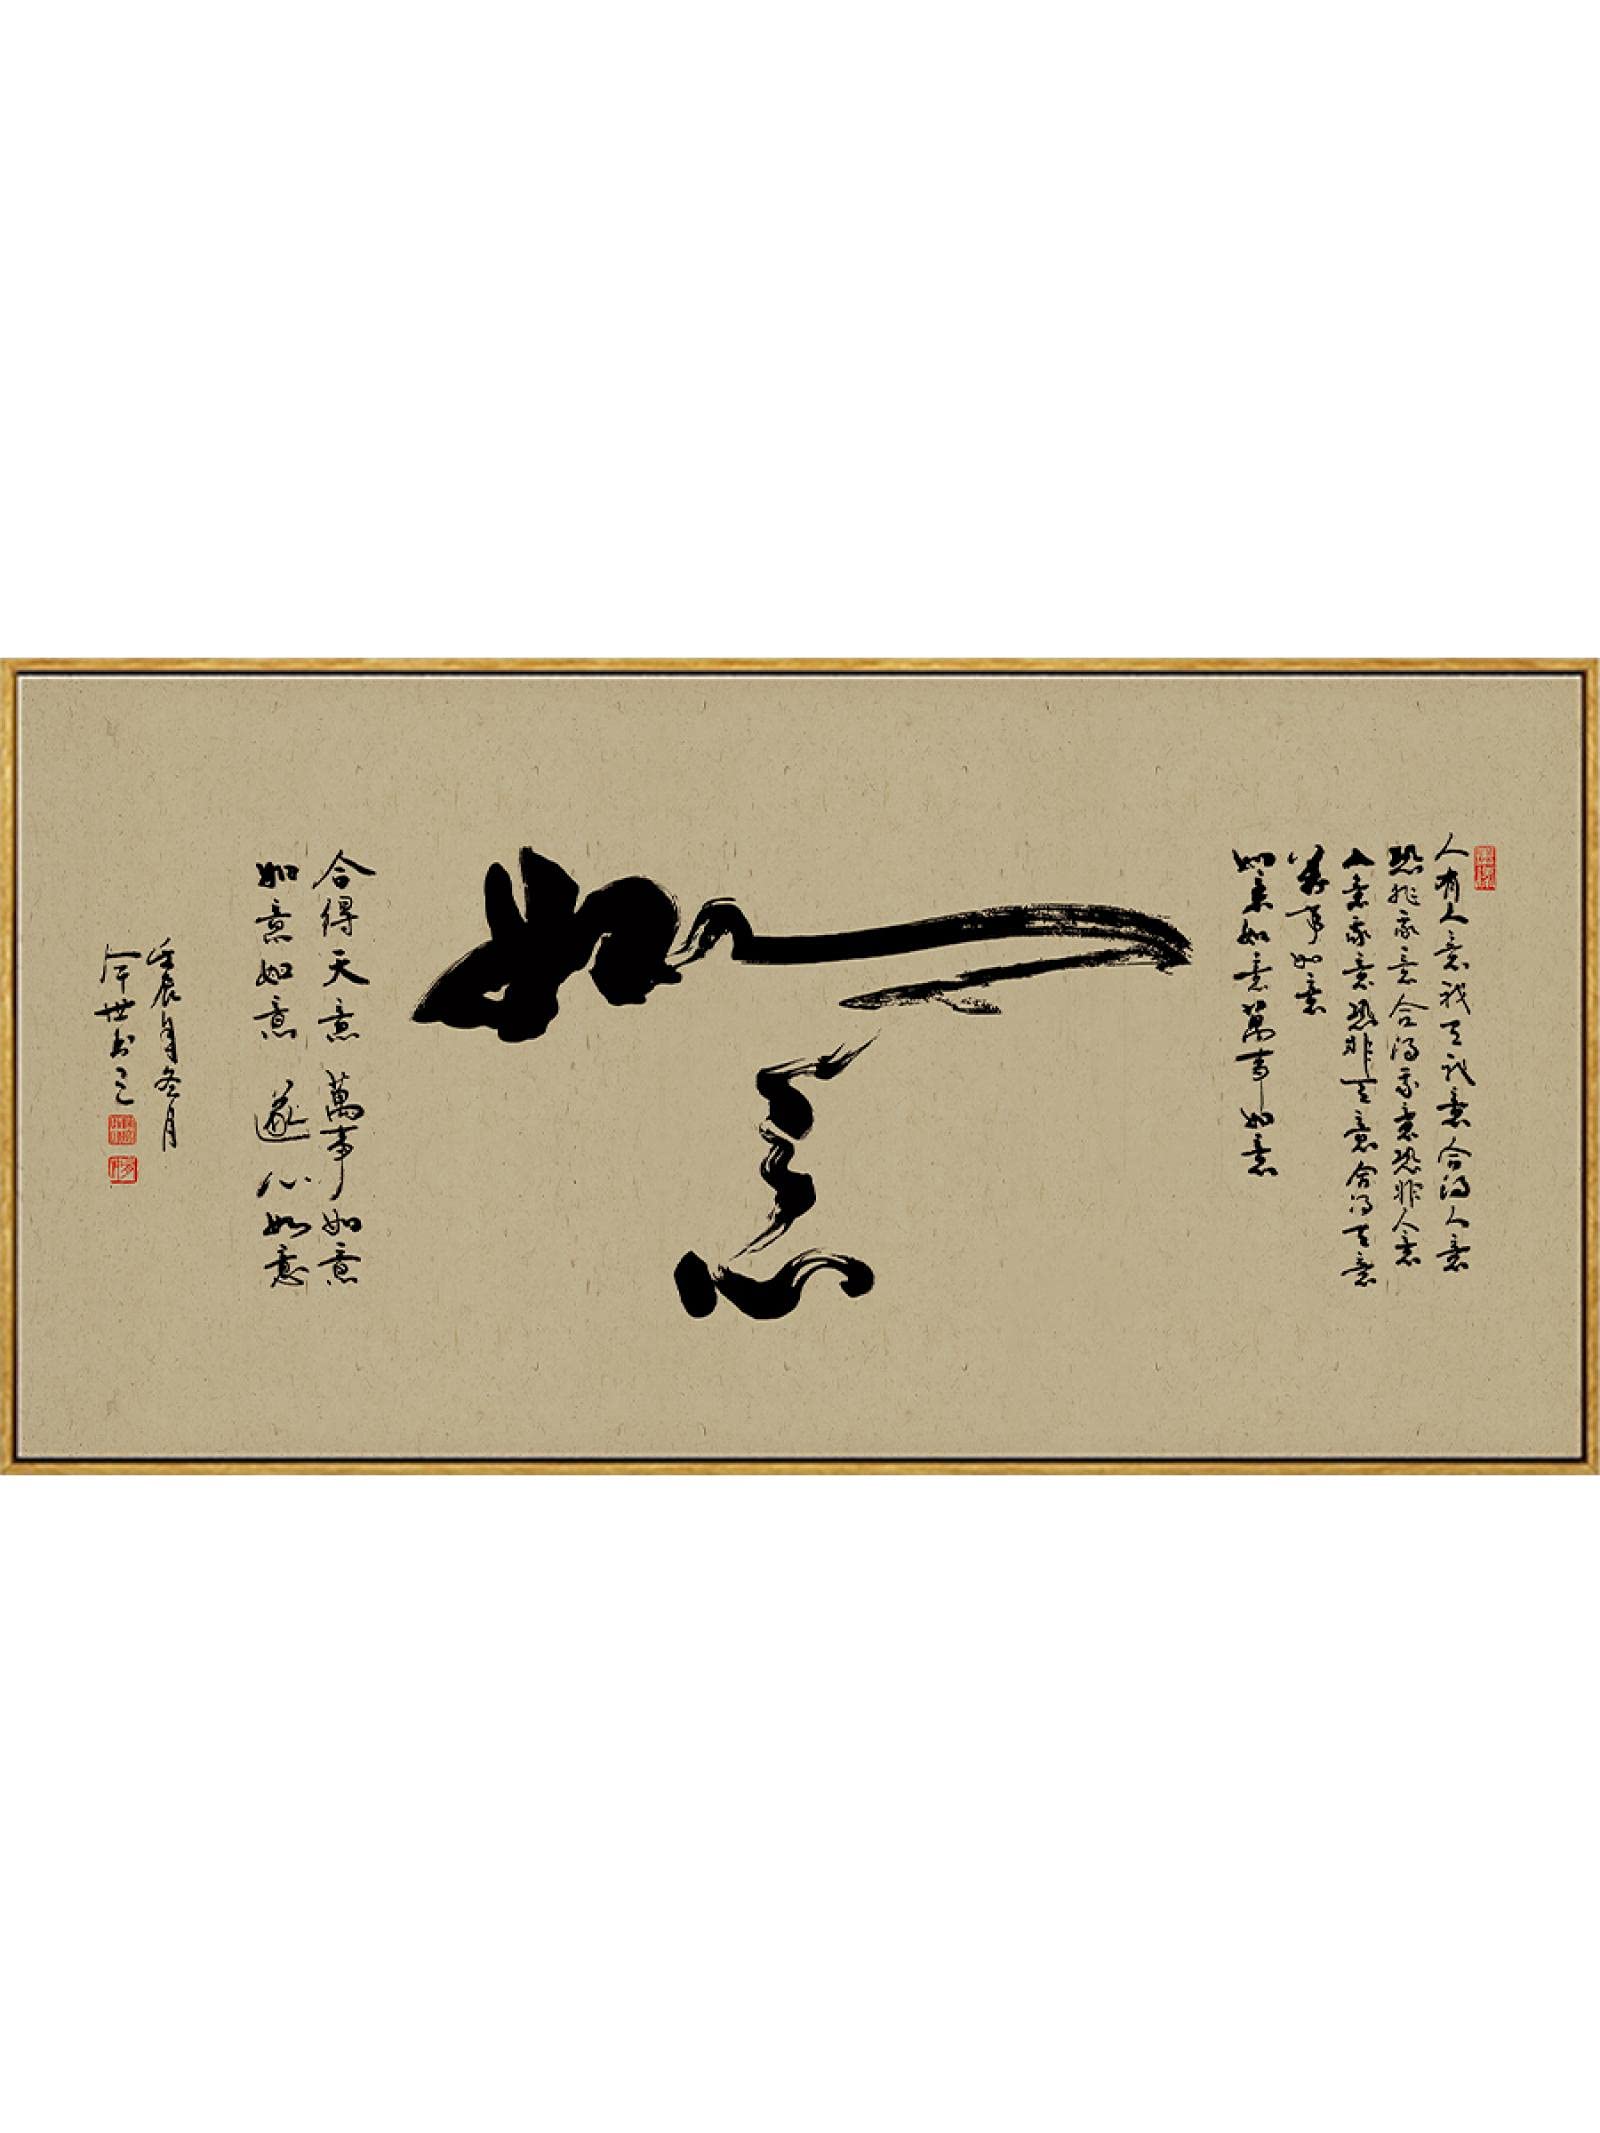 人有人意我有我意合得人意
恐非我意合得我意恐非人意
人意我意恐非天意合得天意
萬事如意
如意如意萬事如意
如意
合得天意 萬事如意
如意如意 遂心如意
壬辰年冬月
世书之